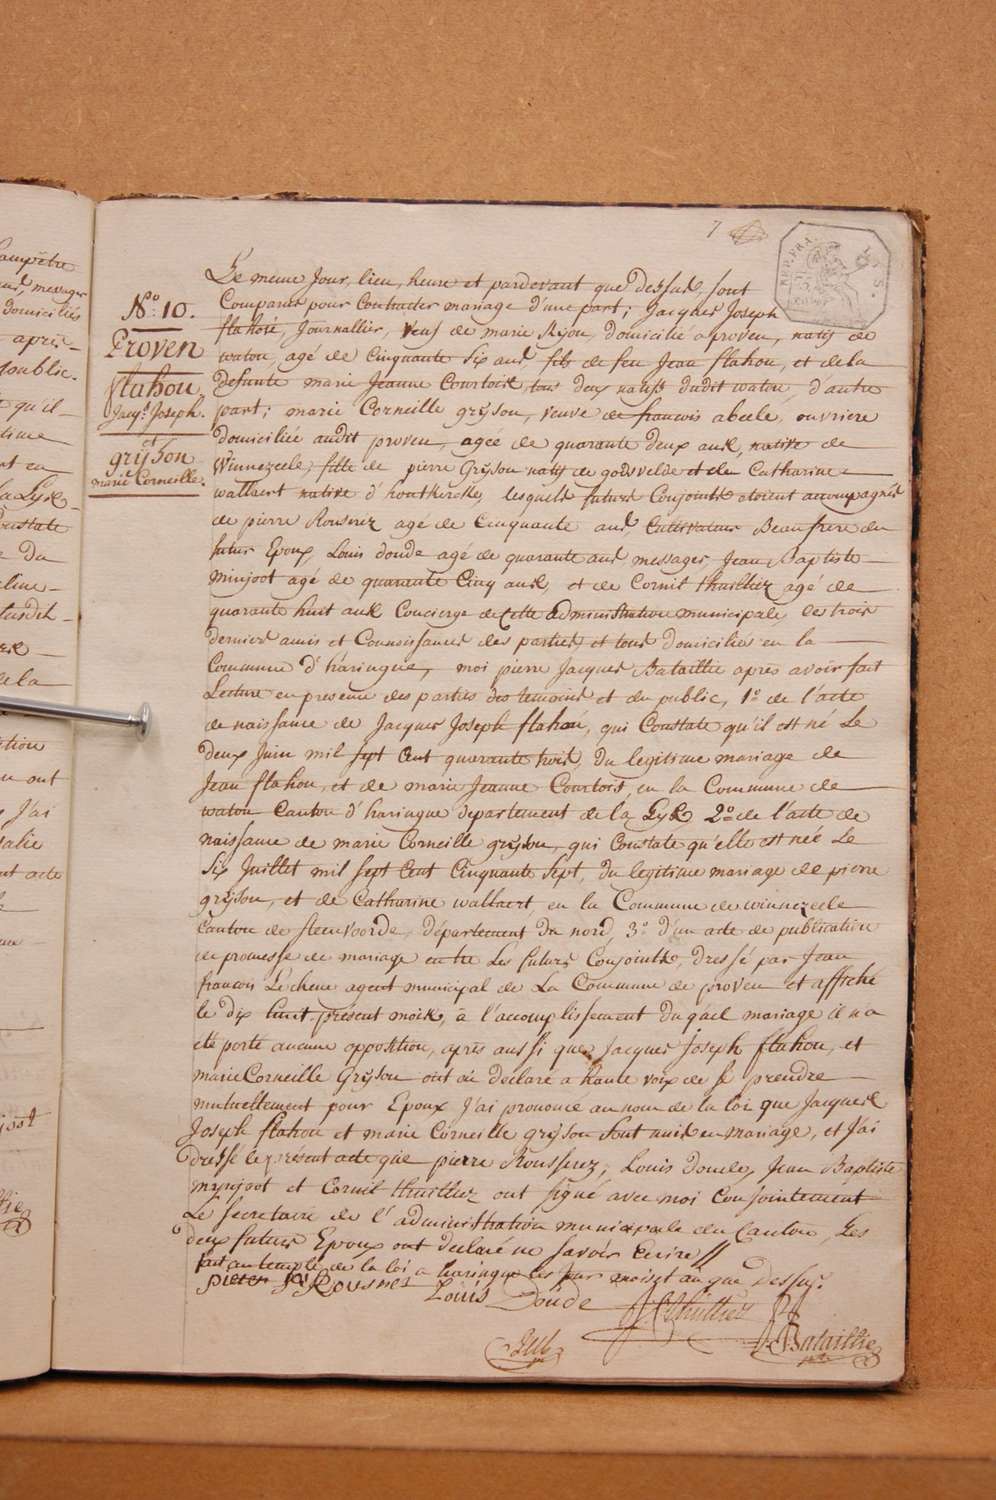 7
REP. FRA.
N.º 10.
Proven
flahou
Jacq.s Joseph.
et
grijson
marie Corneille.
Le meme Jour, lieu, heure et pardevant que dessus, sont
Comparus pour Contracter mariage d'une part; Jacques Joseph
flahou, Journallier, veuf de marie Rijou, domicilié a proven, natif de
watou, agé de Cinquante Six ans, fils de feu Jean flahou, et de la
defunte marie Jeanne Courtois tous deux natifs dudit watou, d'autre
part; marie Corneille grijson, veuve de francois abeele, ouvriere
domiciliée audit proven, agée de quarante deux ans, native de
Winnezeele, fille de pierre Grijson natif de godsvelde et de Catharine
wallaert native d'houtkercke, lesquels futurs Conjoints etoient accompagnés
de pierre Rouserez agé de Cinquante ans, Cultivateur Beaufrere du
futur Epoux, Louis doude agé de quarante ans messager, Jean Baptiste
minjoot agé de quarante Cinq ans, et de Cornil thuilliez agé de
quarante huit ans Concierge de Cette administration municipale les trois
derniers amis et Connoissances des parties et tous domiciliés en la
Commune d'haringue, moi pierre Jacques Bataillie après avoir fait
Lecture en presence des parties des temoins et du public, 1.º de l'acte
de naissance de Jacques Joseph flahou, qui Constate qu'il est né Le
deux Juin mil sept Cent quarante trois, du legitime mariage de
Jean flahou, et de marie Jeanne Courtois, en la Commune de
watou Canton d'haringue departement de la Lys, 2.º de l'acte de
naissance de marie Corneille grijson, qui Constate qu'elle est née Le
Six Juillet mil sept Cent Cinquante Sept, du legitime mariage de pierre
grijson, et de Catharine wallaert en la Commune de winnezeele
Canton de Steenvoorde, département du nord, 3.º d'un acte de publication
de promesse de mariage entre Les futurs Conjoints, dressé par Jean
francois L'echene agent municipal de La Commune de proven et affiché
le dix huit présent mois, à l'accomplissement duquel mariage il n'a
eté porté aucune opposition, après aussi que Jacques Joseph flahou, et
marie Corneille Grijson ont eu declaré a haute voix de se prendre
mutuellement pour Epoux J'ai prononcé au nom de la loi que Jacques
Joseph flahou et marie Corneille grijson sont unis en mariage, et J'ai
dressé le présent acte que pierre Rousserez, Louis doude, Jean Baptiste
mynjoot et Cornil thuilliez ont signé avec moi Conjointement
Le Secretaire de l'administration municipale du Canton, Les
deux futurs Epoux ont declaré ne savoir Ecrire //
fait au temple de la loi a haringue les jour mois et an que Dessus.
pieter Rousres Louis Doude C Thuilliez
P J Bataillie